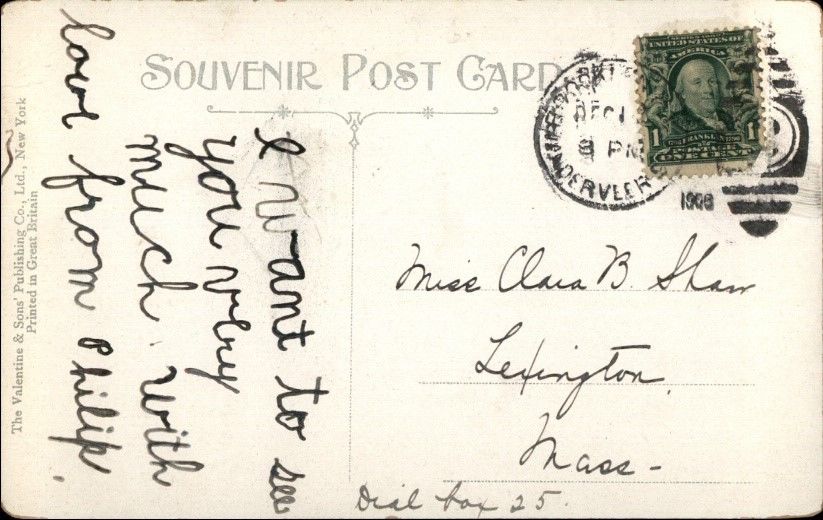 SOUVENIR POST CARD
I want to see
you very
much. with
love from Philip.
The Valentine & Sons' Publishing Co., Ltd., New York
Printed in Great Britain
UNITED STATES OF
AMERICA
1 FRANKLIN 1
ONE CENT
DEC
8 PM
1908
Miss Clara B. Shaw
Lexington
Mass-
Dial box 25.